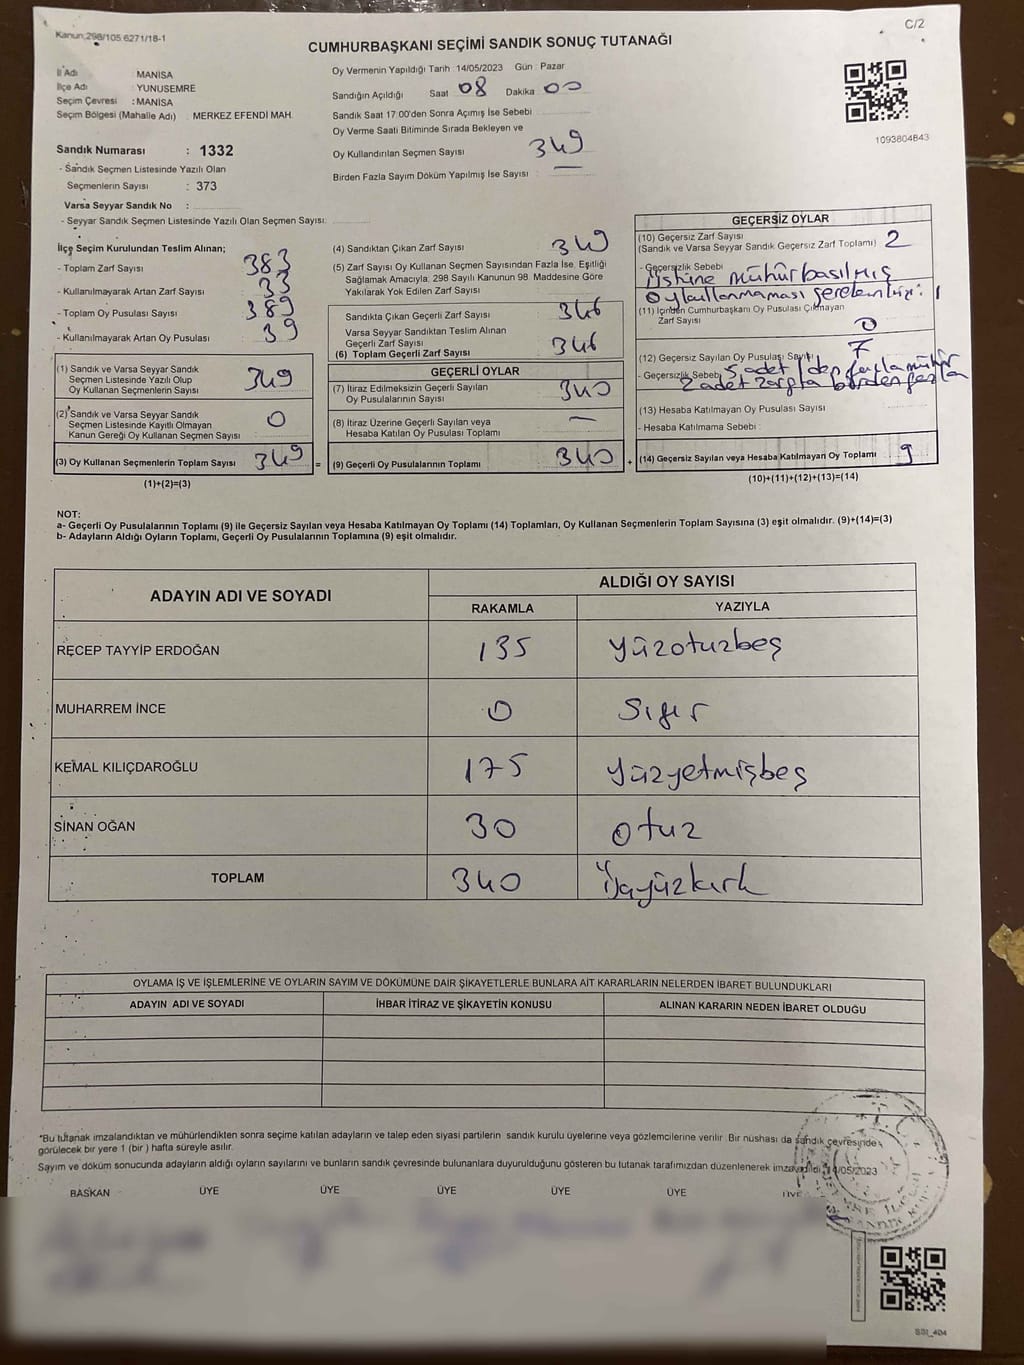 Kanun,298/105 6271/18-1
C/2
CUMHURBAŞKANI SEÇİMİ SANDIK SONUÇ TUTANAĞI
İl Adı : MANİSA
İlçe Adı : YUNUSEMRE
Seçim Çevresi : MANİSA
Seçim Bölgesi (Mahalle Adı) : MERKEZ EFENDİ MAH
Sandık Numarası : 1332
- Sandık Seçmen Listesinde Yazılı Olan
Seçmenlerin Sayısı : 373
Varsa Seyyar Sandık No :
- Seyyar Sandık Seçmen Listesinde Yazılı Olan Seçmen Sayısı:
Oy Vermenin Yapıldığı Tarih 14/05/2023 Gün : Pazar
Sandığın Açıldığı Saat 08 Dakika 00
Sandık Saat 17:00'den Sonra Açımış İse Sebebi
Oy Verme Saati Bitiminde Sırada Bekleyen ve
Oy Kullandırılan Seçmen Sayısı 349
Birden Fazla Sayım Döküm Yapılmış İse Sayısı : —
1093804843
İlçe Seçim Kurulundan Teslim Alınan;
- Toplam Zarf Sayısı 383
- Kullanılmayarak Artan Zarf Sayısı : 33
- Toplam Oy Pusulası Sayısı : 389
- Kullanılmayarak Artan Oy Pusulası : 39
(1) Sandık ve Varsa Seyyar Sandık
Seçmen Listesinde Yazılı Olup
Oy Kullanan Seçmenlerin Sayısı 349
(2) Sandık ve Varsa Seyyar Sandık
Seçmen Listesinde Kayıtlı Olmayan
Kanun Gereği Oy Kullanan Seçmen Sayısı 0
(3) Oy Kullanan Seçmenlerin Toplam Sayısı 349
(1)+(2)=(3)
(4) Sandıktan Çıkan Zarf Sayısı 349
(5) Zarf Sayısı Oy Kullanan Seçmen Sayısından Fazla İse, Eşitliği
Sağlamak Amacıyla; 298 Sayılı Kanunun 98. Maddesine Göre
Yakılarak Yok Edilen Zarf Sayısı
Sandıkta Çıkan Geçerli Zarf Sayısı 346
Varsa Seyyar Sandıktan Teslim Alınan
Geçerli Zarf Sayısı
(6) Toplam Geçerli Zarf Sayısı 346
GEÇERLİ OYLAR
(7) İtiraz Edilmeksizin Geçerli Sayılan
Oy Pusulalarının Sayısı 340
(8) İtiraz Üzerine Geçerli Sayılan veya
Hesaba Katılan Oy Pusulası Toplamı —
= (9) Geçerli Oy Pusulalarının Toplamı 340 +
GEÇERSİZ OYLAR
(10) Geçersiz Zarf Sayısı
(Sandık ve Varsa Seyyar Sandık Geçersiz Zarf Toplamı) 2
- Geçersizlik Sebebi
üstüne mühür basılmış
(11) İçinden Cumhurbaşkanı Oy Pusulası Çıkmayan
Zarf Sayısı 0
(12) Geçersiz Sayılan Oy Pusulası Sayısı 7
- Geçersizlik Sebebi 5 adet 1'den fazla mühür
2 adet zarfta birden fazla
(13) Hesaba Katılmayan Oy Pusulası Sayısı
- Hesaba Katılmama Sebebi :
(14) Geçersiz Sayılan veya Hesaba Katılmayan Oy Toplamı 9
(10)+(11)+(12)+(13)=(14)
NOT:
a- Geçerli Oy Pusulalarının Toplamı (9) ile Geçersiz Sayılan veya Hesaba Katılmayan Oy Toplamı (14) Toplamları, Oy Kullanan Seçmenlerin Toplam Sayısına (3) eşit olmalıdır. (9)+(14)=(3)
b- Adayların Aldığı Oyların Toplamı, Geçerli Oy Pusulalarının Toplamına (9) eşit olmalıdır.
ADAYIN ADI VE SOYADI ALDIĞI OY SAYISI
RAKAMLA YAZIYLA
RECEP TAYYİP ERDOĞAN 135 yüzotuzbeş
MUHARREM İNCE 0 Sıfır
KEMAL KILIÇDAROĞLU 175 yüzyetmişbeş
SİNAN OĞAN 30 otuz
TOPLAM 340 üçyüzkırk
OYLAMA İŞ VE İŞLEMLERİNE VE OYLARIN SAYIM VE DÖKÜMÜNE DAİR ŞİKAYETLERLE BUNLARA AİT KARARLARIN NELERDEN İBARET BULUNDUKLARI
ADAYIN ADI VE SOYADI İHBAR İTİRAZ VE ŞİKAYETİN KONUSU ALINAN KARARIN NEDEN İBARET OLDUĞU
"Bu tutanak imzalandıktan ve mühürlendikten sonra seçime katılan adayların ve talep eden siyasi partilerin sandık kurulu üyelerine veya gözlemcilerine verilir. Bir nüshası da sandık çevresinde
görülecek bir yere 1 (bir ) hafta süreyle asılır.
Sayım ve döküm sonucunda adayların aldığı oyların sayılarını ve bunların sandık çevresinde bulunanlara duyurulduğunu gösteren bu tutanak tarafımızdan düzenlenerek imzalandı. 14/05/2023
BAŞKAN ÜYE ÜYE ÜYE ÜYE ÜYE ÜYE